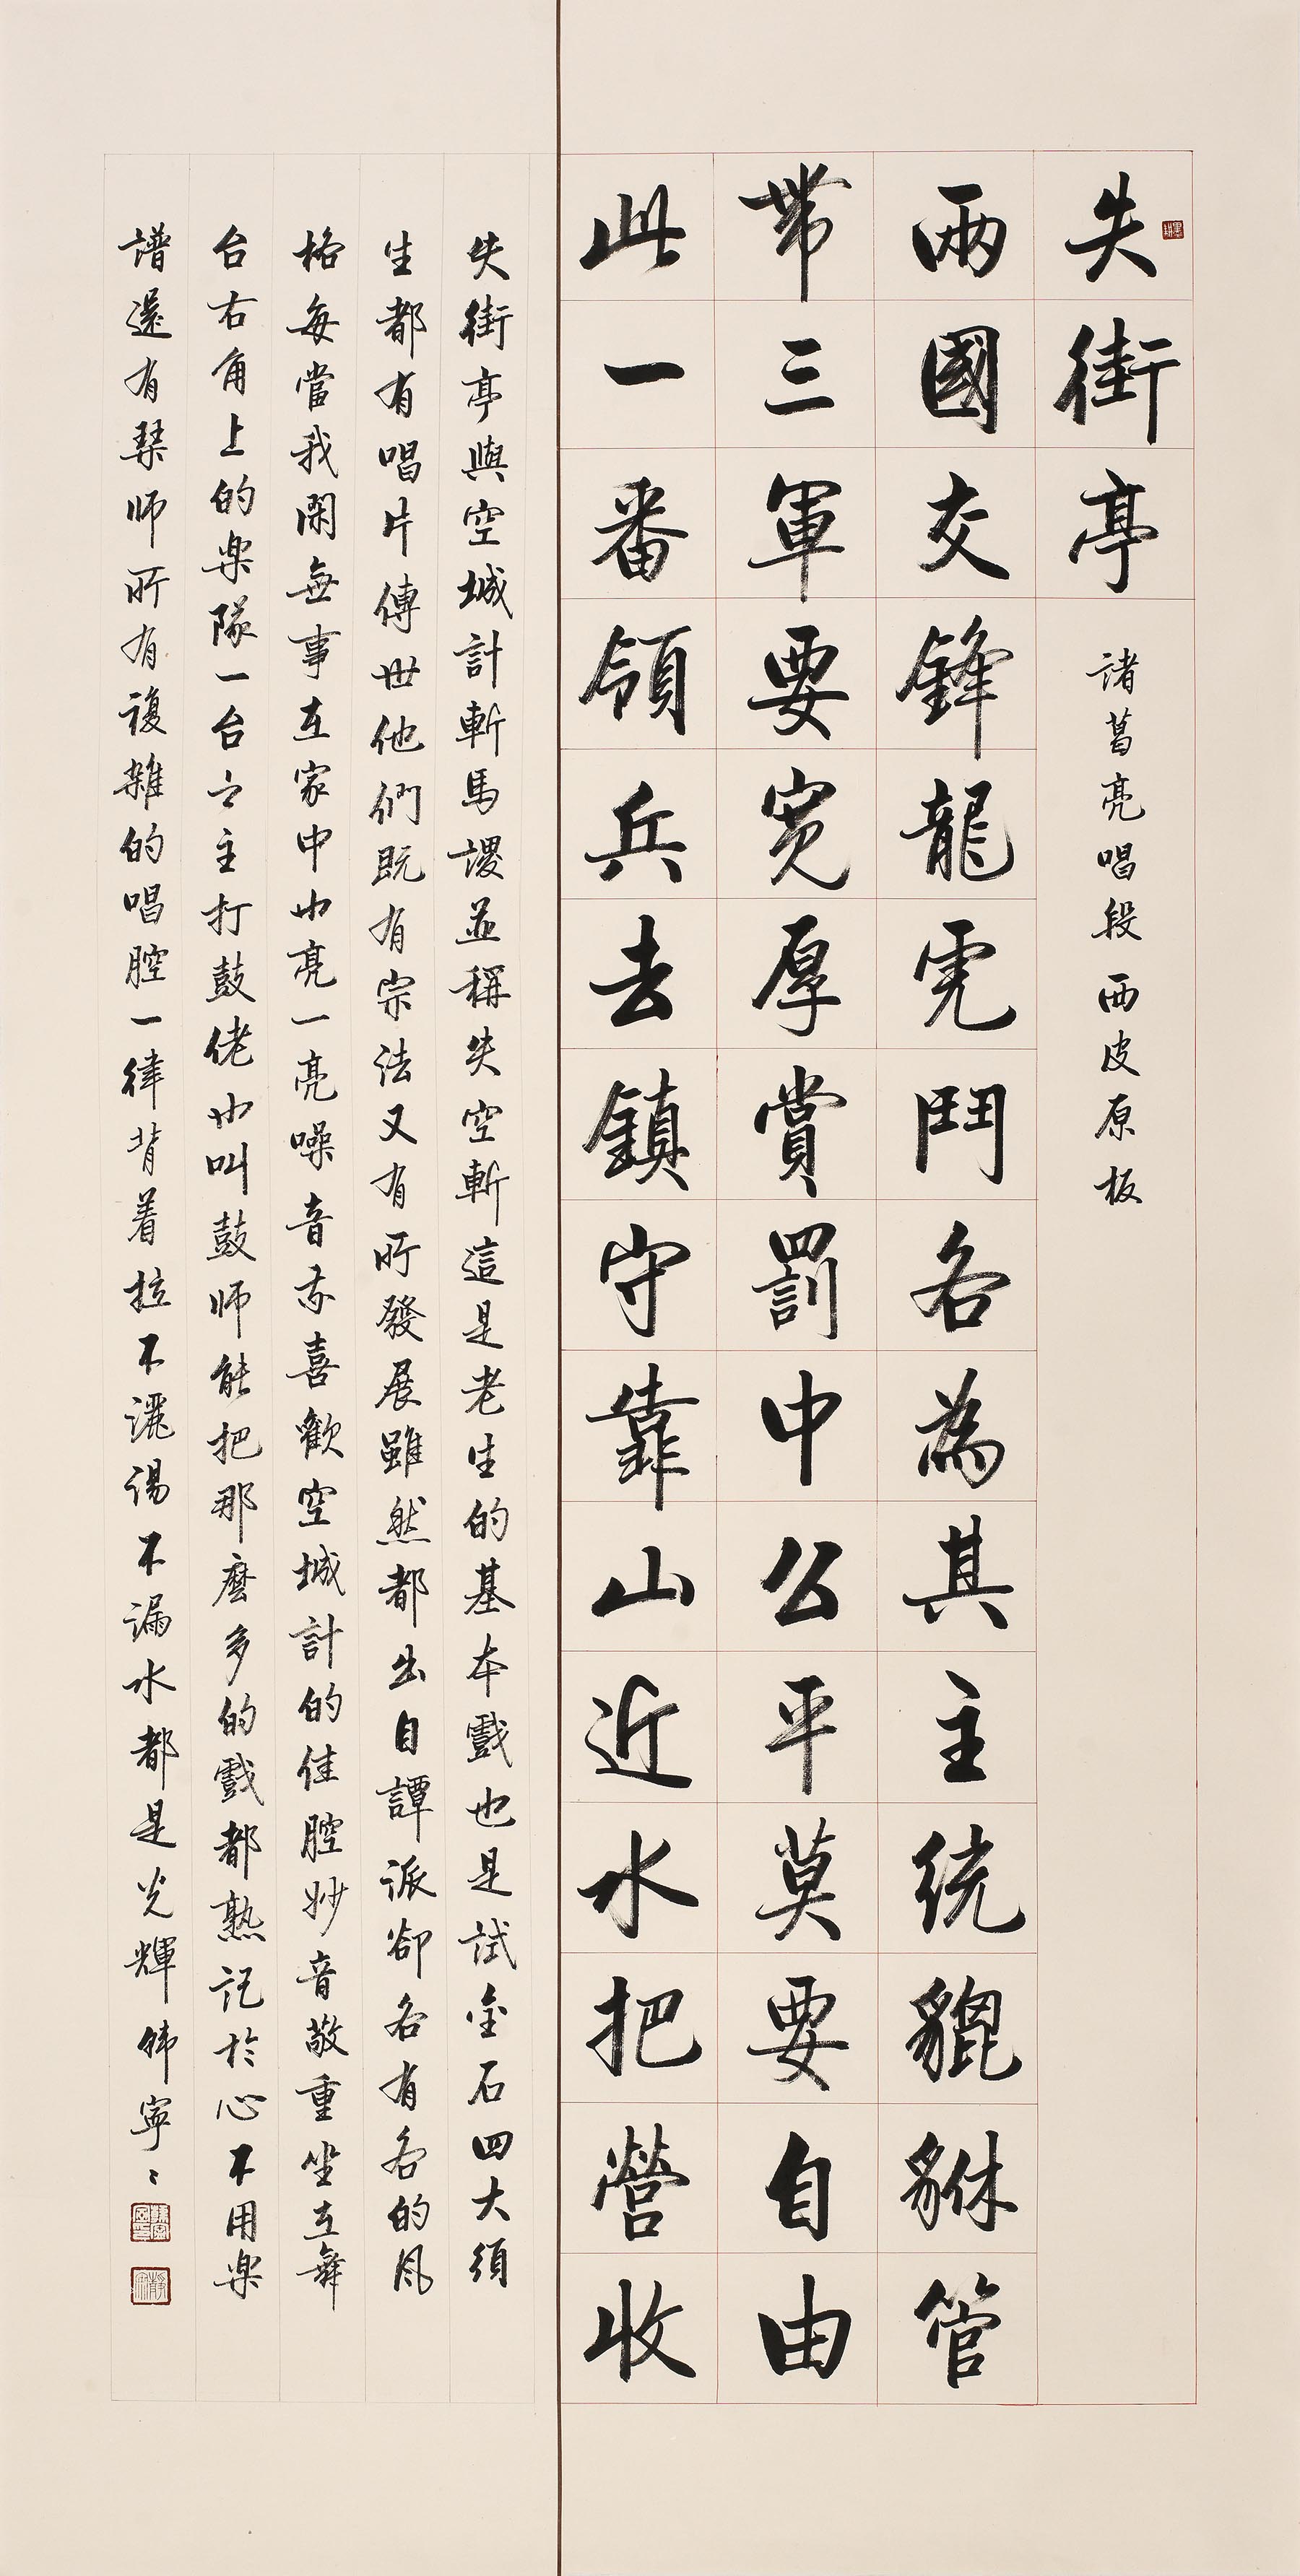 失街亭 諸葛亮唱段西皮原板
兩國交鋒龍虎鬥各為其主統貔貅管
帶三軍要寬厚賞罰中公平莫要自由
此一番領兵去鎮守靠山近水把營收
失街亭與空城計斬馬謖並稱失空斬這是老生的基本戲也是試金石四大須
生都有唱片傳世他們既有宗法又有所發展雖然都出自譚派卻各有各的風
格每當我閑無事在家中也亮一亮噪音我喜歡空城計的佳腔妙音敬重坐在舞
台右角上的樂隊一台之主打鼓佬也叫鼓師能把那麼多的戲都熟記於心不用樂
譜還有琴師所有複雜的唱腔一律背着拉不灑湯不漏水都是光輝偉寧〻